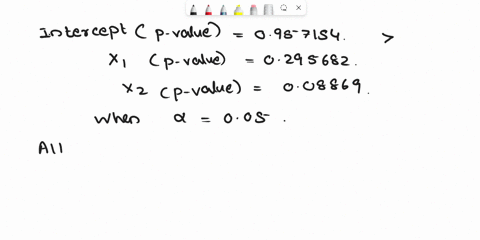 Intercept (p-value) = 0.957154. >
x1 (p-value) = 0.295682.
x2 (p-value) = 0.08869.
when α = 0.05.
All